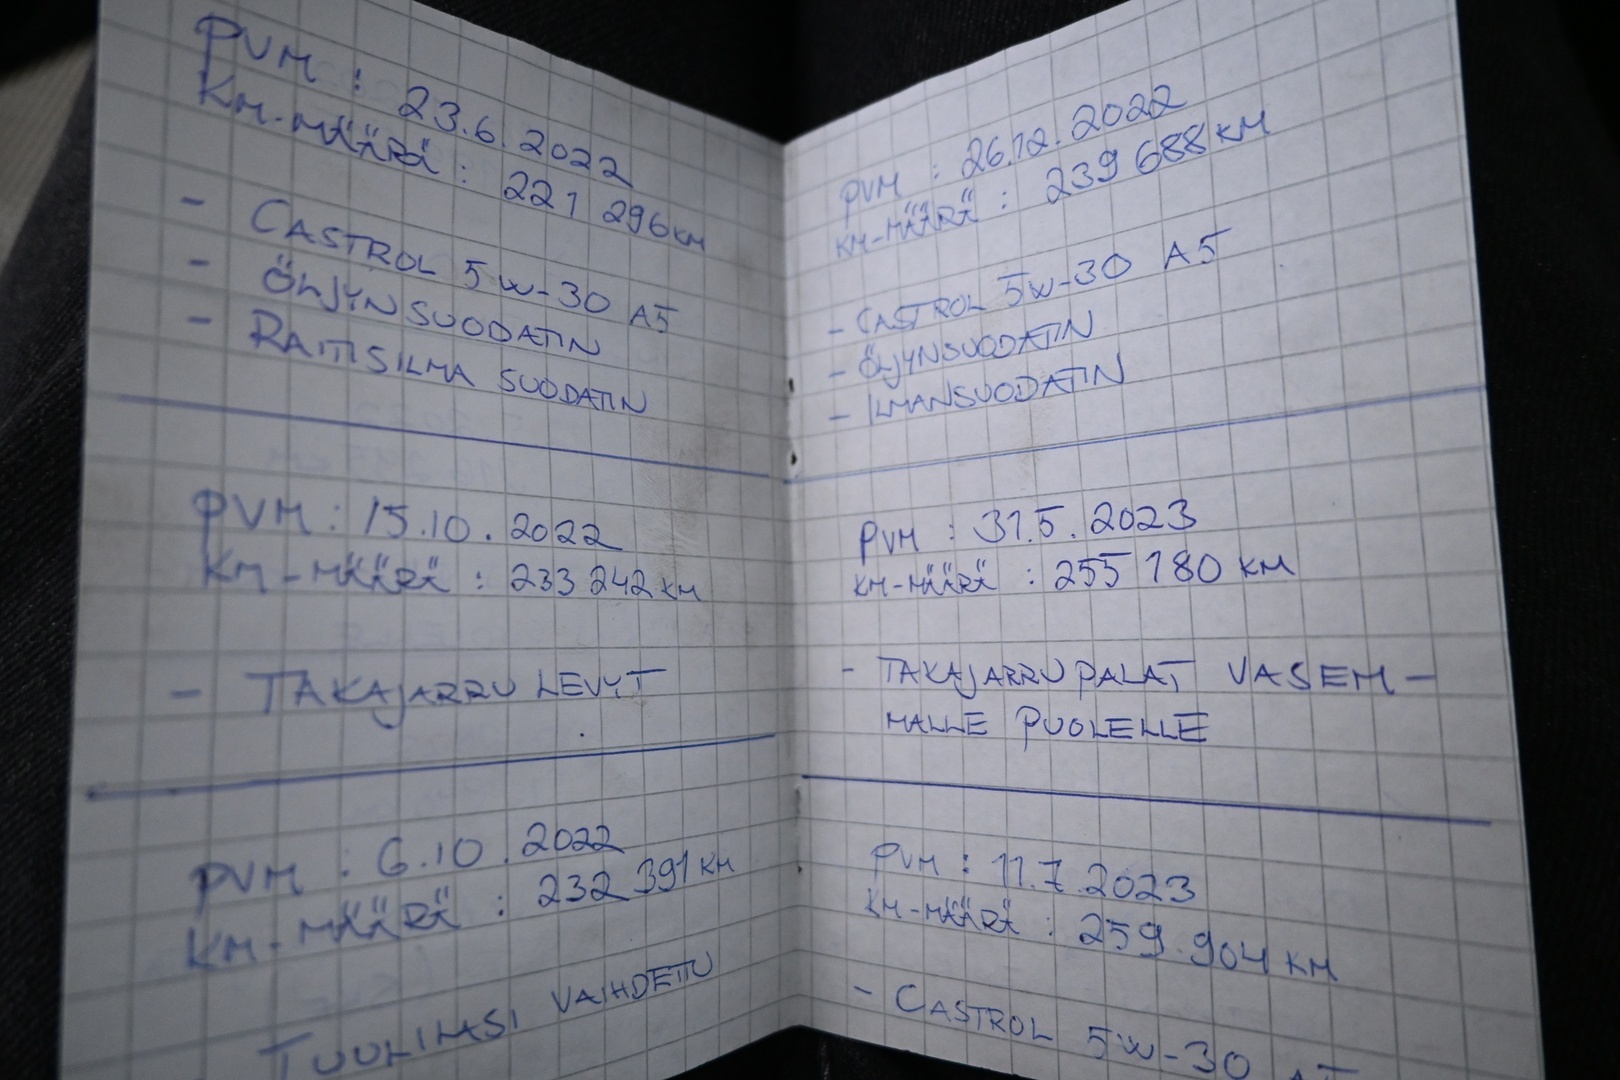 PVM : 23.6.2022
KM-MÄÄRÄ : 221 296 KM
- CASTROL 5W-30 A5
- ÖLJYNSUODATIN
- RAITISILMA SUODATIN
PVM : 15.10.2022
KM-MÄÄRÄ : 233 242 KM
- TAKAJARRU LEVYT
PVM : 6.10.2022
KM-MÄÄRÄ : 232 391 KM
TUULILASI VAIHDETTU
PVM : 26.12.2022
KM-MÄÄRÄ : 239 688 KM
- CASTROL 5W-30 A5
- ÖLJYNSUODATIN
- ILMANSUODATIN
PVM : 31.5.2023
KM-MÄÄRÄ : 255 180 KM
- TAKAJARRUPALAT VASEM-
MALLE PUOLELLE
PVM : 11.7.2023
KM-MÄÄRÄ : 259.904 KM
- CASTROL 5W-30 A5